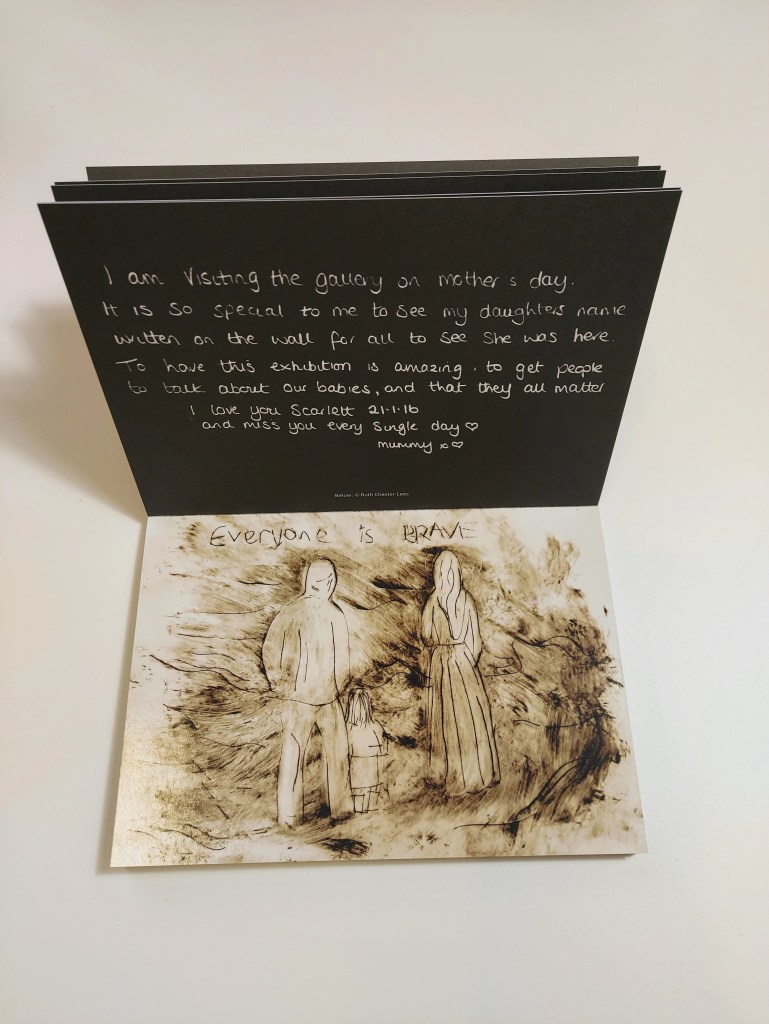 I am visiting the gallery on mother's day.
It is so special to me to see my daughters name
written on the wall for all to see she was here.
To have this exhibition is amazing. to get people
to talk about our babies, and that they all matter
I love you Scarlett 21.1.16
and miss you every single day ♡
mummy x♡
Below, © Ruth Chester-Lees
Everyone is BRAVE